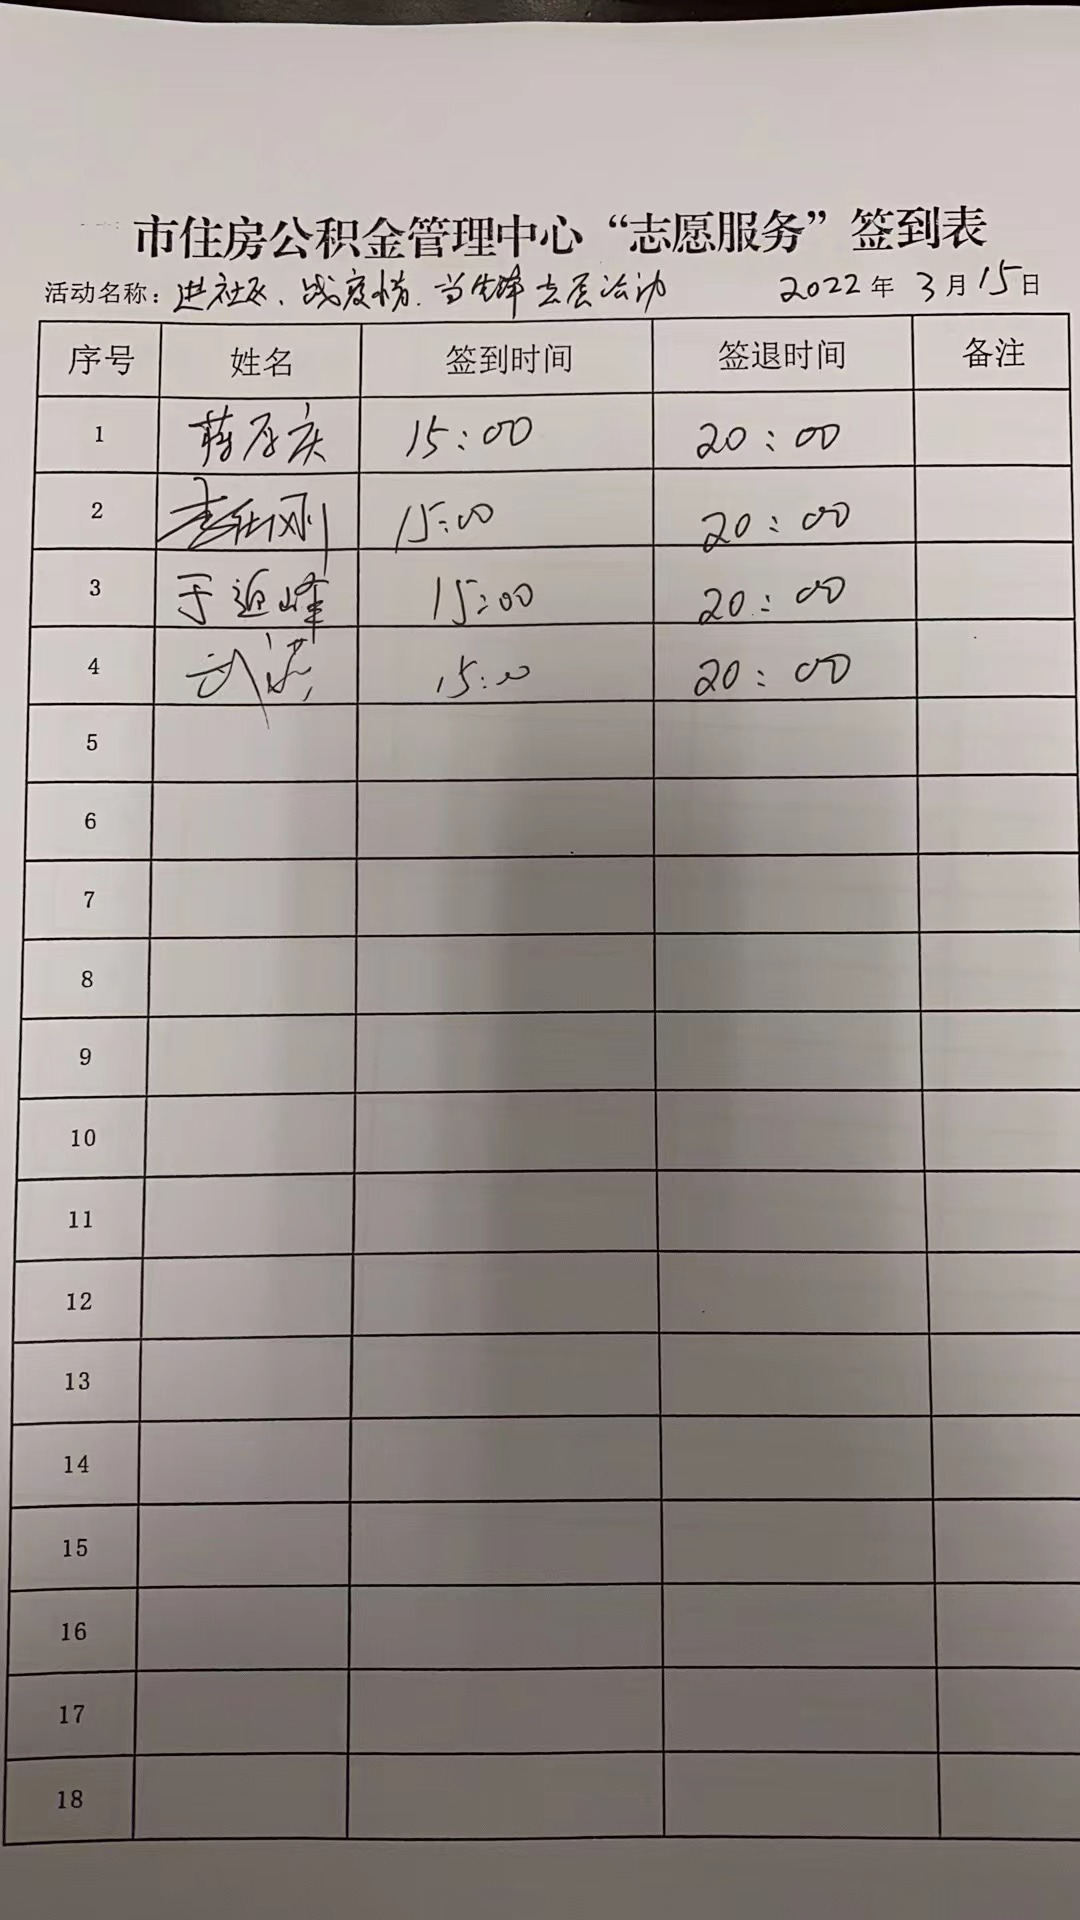 市住房公积金管理中心“志愿服务”签到表
活动名称：进社区、战疫情、当先锋志愿活动 2022年 3月15日
序号 姓名 签到时间 签退时间 备注
1 蒋厚庆 15:00 20:00
2 李红刚 15:00 20:00
3 于迎峰 15:00 20:00
4 武 15:00 20:00
5
6
7
8
9
10
11
12
13
14
15
16
17
18